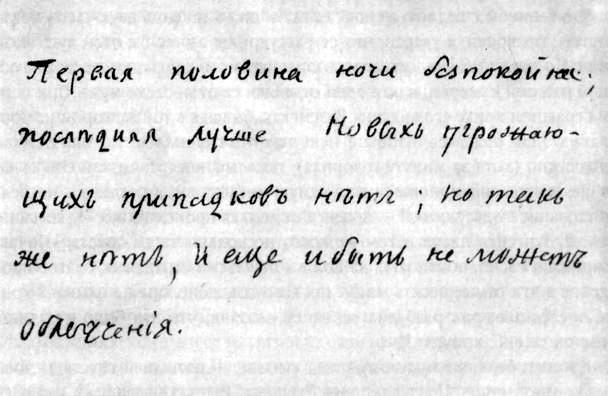 Первая половина ночи безпокойная;
последняя лучше Новыхъ угрожаю-
щихъ припадковъ нѣтъ, но такъ
же нѣтъ, и еще и быть не можетъ
облегченія.